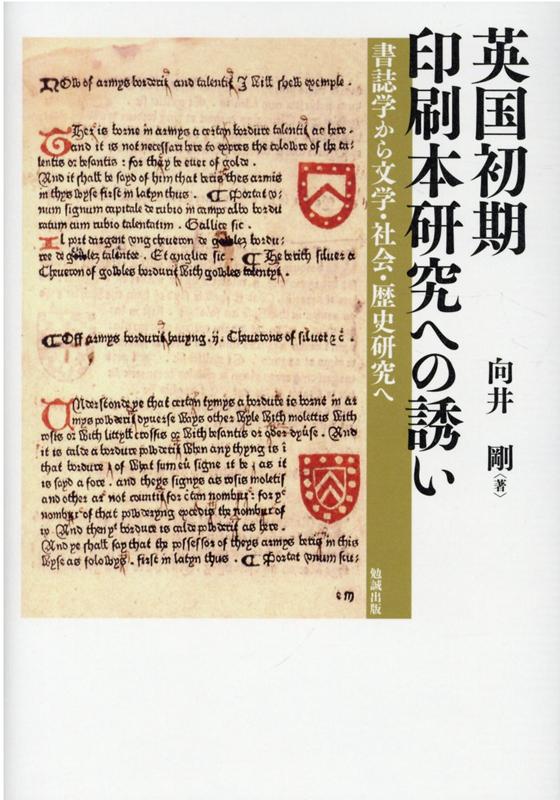 英国初期
印刷本研究への誘い
向井 剛〈著〉
書誌学から文学・社会・歴史研究へ
勉誠出版
Now of armys borderit and talentit I will shew exemple.
Ther is borne in armys a certan bordure talentit as here.
and it is not necessari here to expres the coloure of the ta=
lentis or besantis : for thay be euer of golde.
And it shall be sayd of him that beris thes armis
in thys wyse first in latyn thus. Portat v=
num signum capitale de rubio in campo albo bordu
ratum cum rubio talentatim. Gallice sic.
Il port dargent vng cheueron de
tee de talentee. Et anglice sic. He berith siluer a
Cheueron of gowles bordurit with gowles talentyt.
Off armys borduri hauyng .ij. Cheuerons of siluer
Vnderstonde ye that certan tymys a bordure is borne in ar
mys dyuerse ways other wyle with molettis with
rosis or with littyll crossis or with besantis or And
it is calde a bordure when any thyng is i
that bordure of what sum eu signe it be as it
is sayd a fore. and theys signys as rosis moletis
and other ar not countit for c tan nombur : for ye
nombur of that the nombur of
And then ye bordure is calde as here.
And ye shall say that the possessor of theys armys beris in this
wyse as folowys. first in latyn thus. Portat vnum scu=